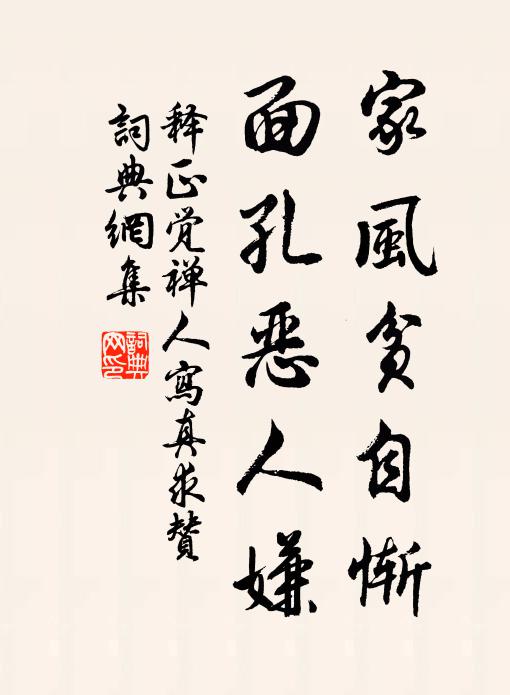 家風貧自慚
面孔惡人嫌
释正觉禅人寫真求贊
詞典網集
詞典網印